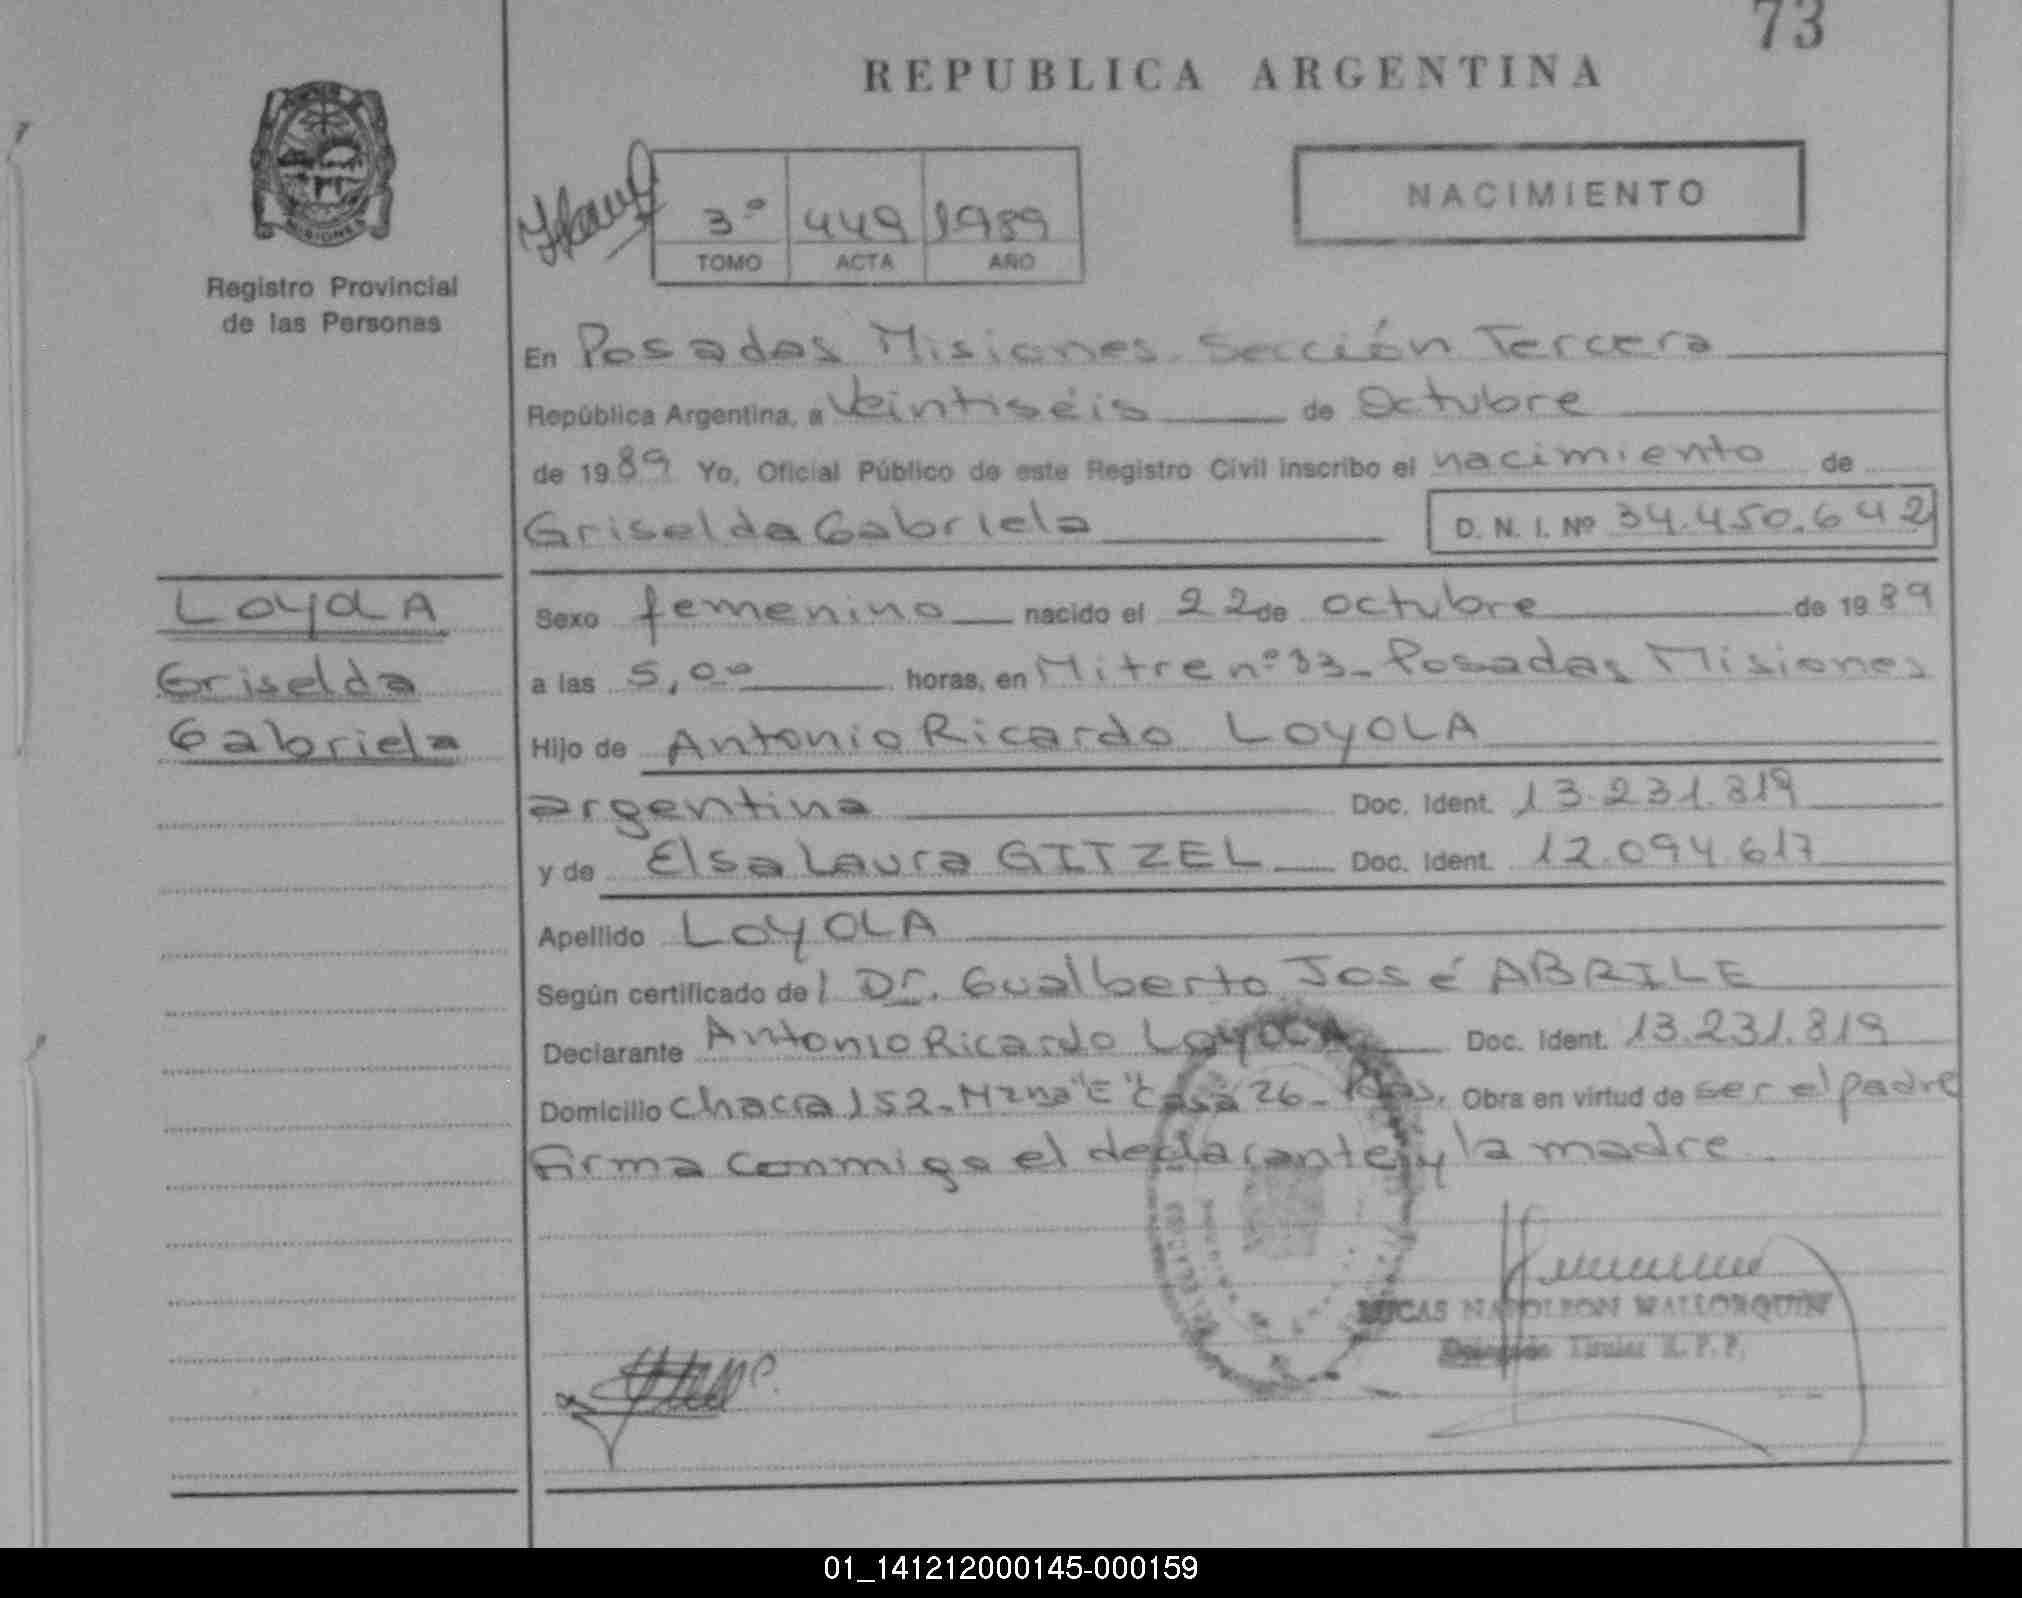 73
REPUBLICA ARGENTINA
NACIMIENTO
3º 449 1989
TOMO ACTA AÑO
MISIONES
Registro Provincial
de las Personas
En Posadas Misiones. Sección Tercera
República Argentina, a Veintiséis de Octubre
de 1989 Yo, Oficial Público de este Registro Civil inscribo el nacimiento de
Griselda Gabriela D. N. I. Nº 34.450.642
LOYOLA
Griselda
Gabriela
Sexo femenino nacido el 22 de octubre de 1989
a las 5,00 horas, en Mitre nº 33- Posadas Misiones
Hijo de Antonio Ricardo LOYOLA
argentina Doc. Ident. 13.231.819
y de Elsa Laura GITZEL Doc. Ident. 12.094.617
Apellido LOYOLA
Según certificado del Dr. Gualberto José ABRILE
Declarante Antonio Ricardo LOYOLA Doc. Ident. 13.231.819
Domicilio Chacra 152- Mzna "E" Casa 26- Pdas. Obra en virtud de ser el padre
firma conmigo el declarante y la madre.
LUCAS NAPOLEON MALLORQUIN
Titular R. P. P.
01_141212000145-000159